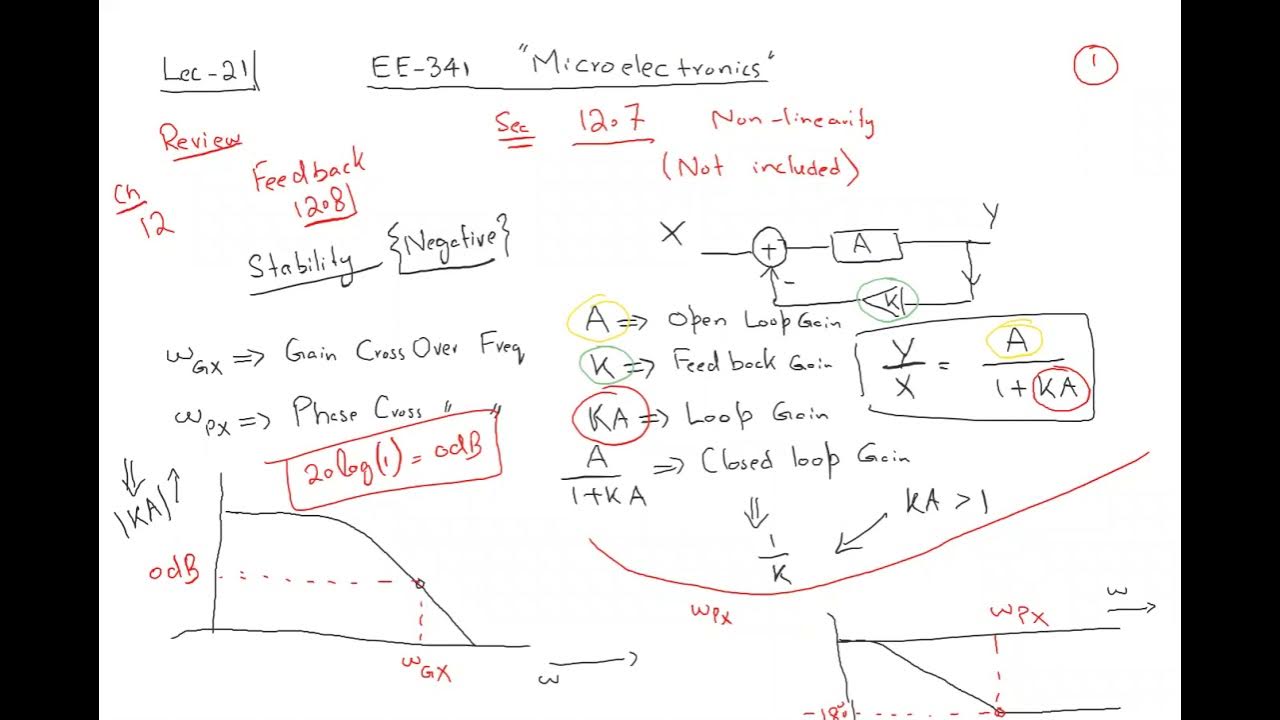 Lec-21 EE-341 "Microelectronics" 1
Review Sec 12.7 Non-linearity
(Not included)
Ch 12 Feedback
12.8
Stability {Negative}
X + A Y
- K
A => Open Loop Gain
K => Feedback Gain
KA => Loop Gain
A/(1+KA) => Closed loop Gain
Y/X = A/(1+KA)
ω_GX => Gain Cross Over Freq
ω_PX => Phase Cross " "
20log(1) = 0dB
KA > 1
1/K
|KA|
0dB
ω_GX
ω
ω_PX
ω_PX
ω
-180